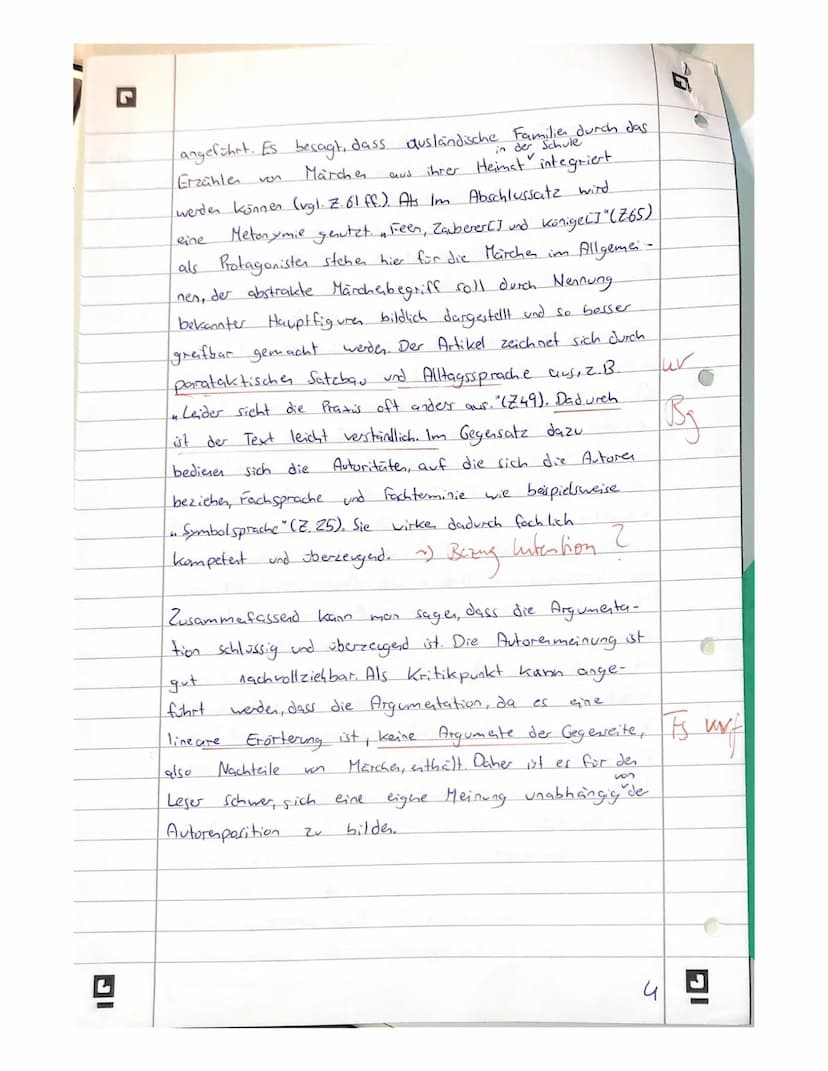 angeführt. Es besagt, dass ausländische Familien durch das
in der Schule
Erzählen von Märchen aus ihrer Heimat ˅ integriert
werden können (vgl. Z. 61 ff.). Im Abschlussatz wird
eine Metonymie genutzt. „Feen, Zauberer[] und Könige[]" (Z.65)
als Protagonisten stehen hier für die Märchen im Allgemei-
nen, der abstrakte Märchenbegriff soll durch Nennung
bekannter Hauptfiguren bildlich dargestellt und so besser
greifbar gemacht werden. Der Artikel zeichnet sich durch
parataktischen Satzbau und Alltagssprache aus, z.B.
„Leider sieht die Praxis oft anders aus." (Z.49). Dadurch
Bg
ist der Text leicht verständlich. Im Gegensatz dazu
bedienen sich die Autoritäten, auf die sich die Autoren
beziehen, Fachsprache und Fachterminie wie beispielsweise
„Symbolsprache" (Z. 25). Sie wirken dadurch fachlich
kompetent und überzeugend. ~) Bezug Intention?
Zusammefassend kann man sagen, dass die Argumenta-
tion schlüssig und überzeugend ist. Die Autorenmeinung ist
gut nachvollziehbar. Als Kritikpunkt kann ange-
führt werden, dass die Argumentation, da es eine
lineare Erörterung ist, keine Argumente der Gegenseite,
also Nachteile von Märchen, enthält. Daher ist es für den
von
Leser schwer, sich eine eigene Meinung unabhängig ˅ der
Autorenposition zu bilden.
4